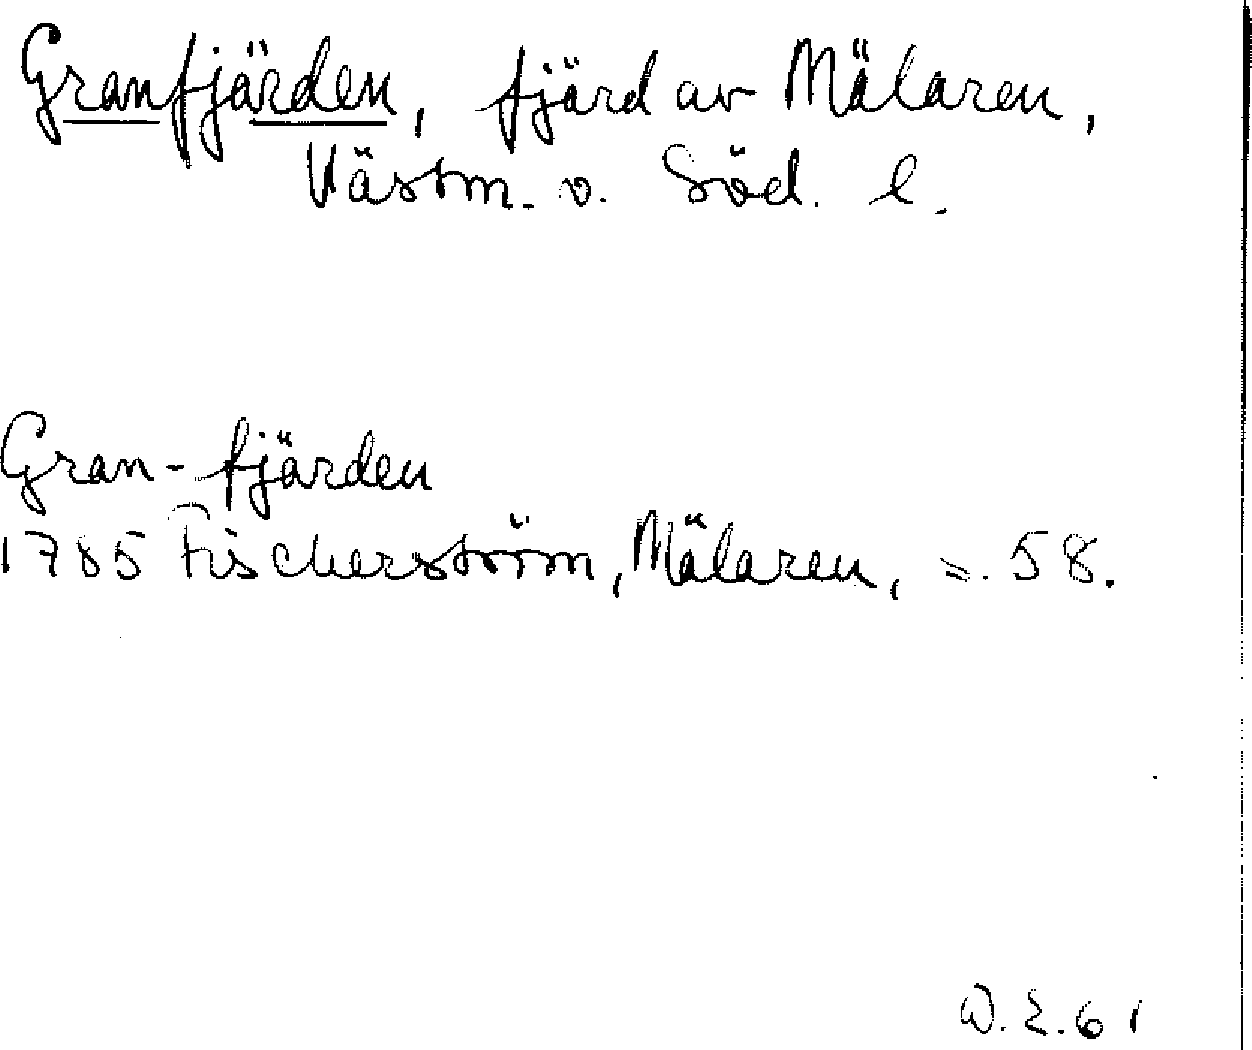 Granfjärden, fjärd av Mälaren,
Västm. o. Söd. l.
Gran-fjärden
1785 Fischerström, Mälaren, s. 58.
D.E. 61